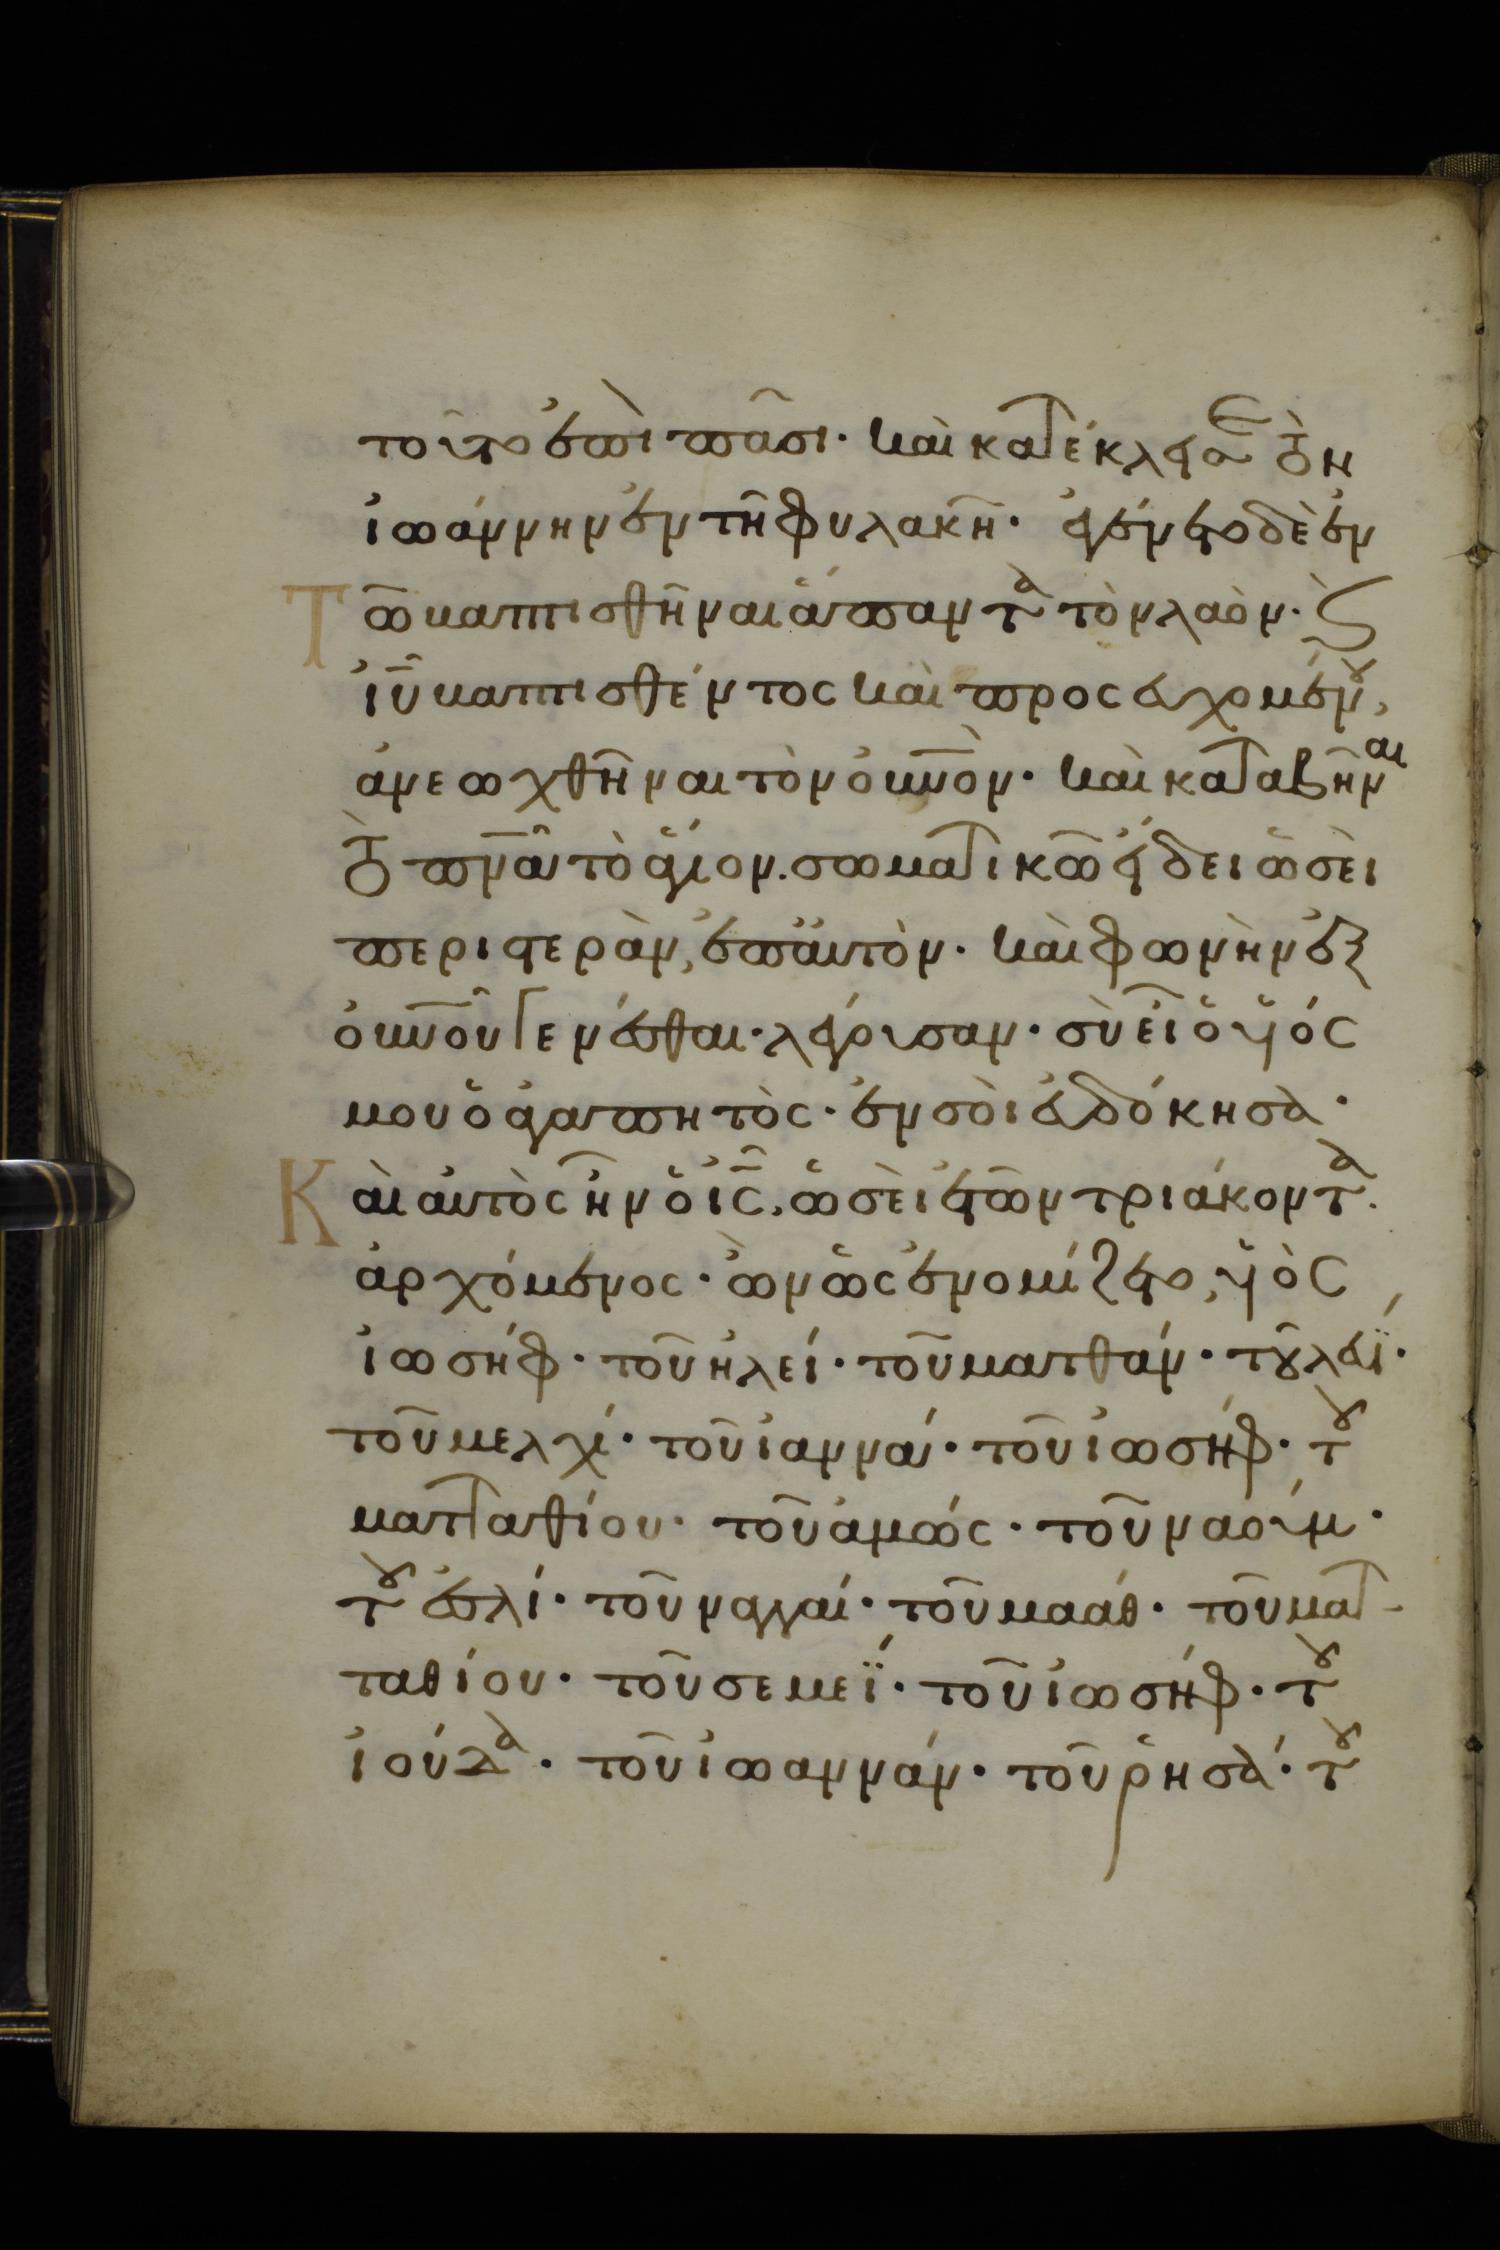 τοῦτο ἐπὶ πᾶσι· καὶ κατέκλεισε τὸν
ἰωάννην ἐν τῆ φυλακῆ· ἐγένετο δὲ ἐν
Τῶ βαπτισθῆναι ἅπαντα τὸν λαὸν· καὶ
ἰῦ βαπτισθέντος καὶ προσευχομένου,
ἀνεωχθῆναι τὸν οὐνὸν· καὶ καταβῆναι
τὸ πνᾶ τὸ ἅγιον. σωματικῶ εἴδει ὡσεὶ
περιστερὰν, ἐπ' αὐτὸν· καὶ φωνὴν ἐξ
οὐνοῦ γενέσθαι· λέγουσαν· σὺ εἶ ὁ υἱός
μου ὁ ἀγαπητὸς· ἐν σοὶ εὐδόκησα·
Καὶ αὐτὸς ἦν ὁ ἰς, ὡσεὶ ἐτῶν τριάκοντα.
ἀρχόμενος· ὢν ὡς ἐνομίζετο, υἱὸς
ἰωσήφ· τοῦ ἠλεί· τοῦ ματθάν· τοῦ λευΐ·
τοῦ μελχί· τοῦ ἰαννά· τοῦ ἰωσήφ· τοῦ
ματταθίου· τοῦ ἀμώς· τοῦ ναούμ·
τοῦ ἐσλί· τοῦ ναγγαί· τοῦ μαάθ· τοῦ ματ-
ταθίου· τοῦ σεμεΐ· τοῦ ἰωσήφ· τοῦ
ἰούδα· τοῦ ἰωαννάν· τοῦ ῥησά· τοῦ